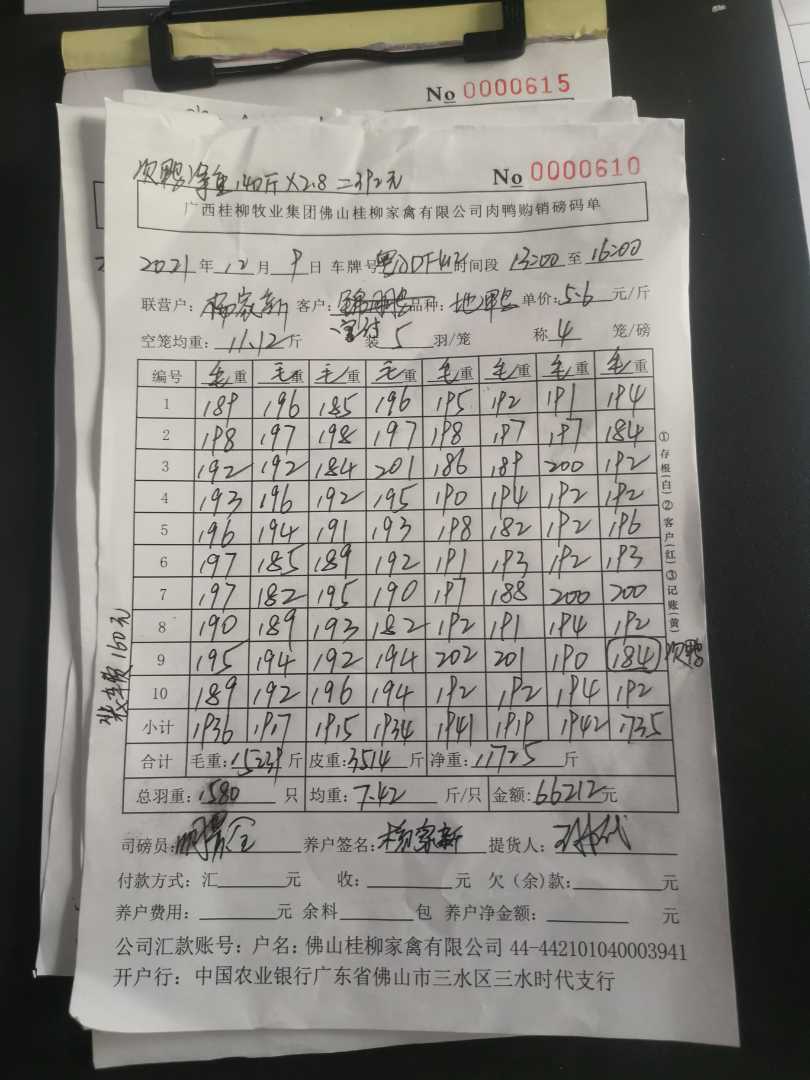 No 0000615
次鸭净重140斤×2.8=392元
No 0000610
广西桂柳牧业集团佛山桂柳家禽有限公司肉鸭购销磅码单
2021年12月9日 车牌号 时间段 13:00至16:00
联营户:杨家新 客户: 品种: 单价:5.6元/斤
空笼均重:11.12斤 装5羽/笼 称4笼/磅
编号 毛重 毛重 毛重 毛重 毛重 毛重 毛重 毛重
1 189 196 185 196 195 192 191 194
2 198 197 198 197 198 197 197 184
3 192 192 184 201 186 189 200 192
4 193 196 192 195 190 194 192 192
5 196 194 191 193 198 182 192 196
6 197 185 189 192 191 193 192 193
7 197 182 195 190 197 188 200 200
8 190 189 193 182 192 191 194 192
9 195 194 192 194 202 201 190 184 次鸭
10 189 192 196 194 192 192 194 192
小计 1936 1917 1915 1934 1941 1919 1942 1735
合计 毛重:15239斤 皮重:3514斤 净重:11725斤
总羽重:1580只 均重:7.42斤/只 金额:66212元
司磅员: 养户签名:杨家新 提货人:
付款方式:汇 元 收: 元 欠(余)款: 元
养户费用: 元 余料 包 养户净金额: 元
公司汇款账号:户名:佛山桂柳家禽有限公司 44-442101040003941
开户行:中国农业银行广东省佛山市三水区三水时代支行
①存根(白)②客户(红)③记账(黄)
装车费160元